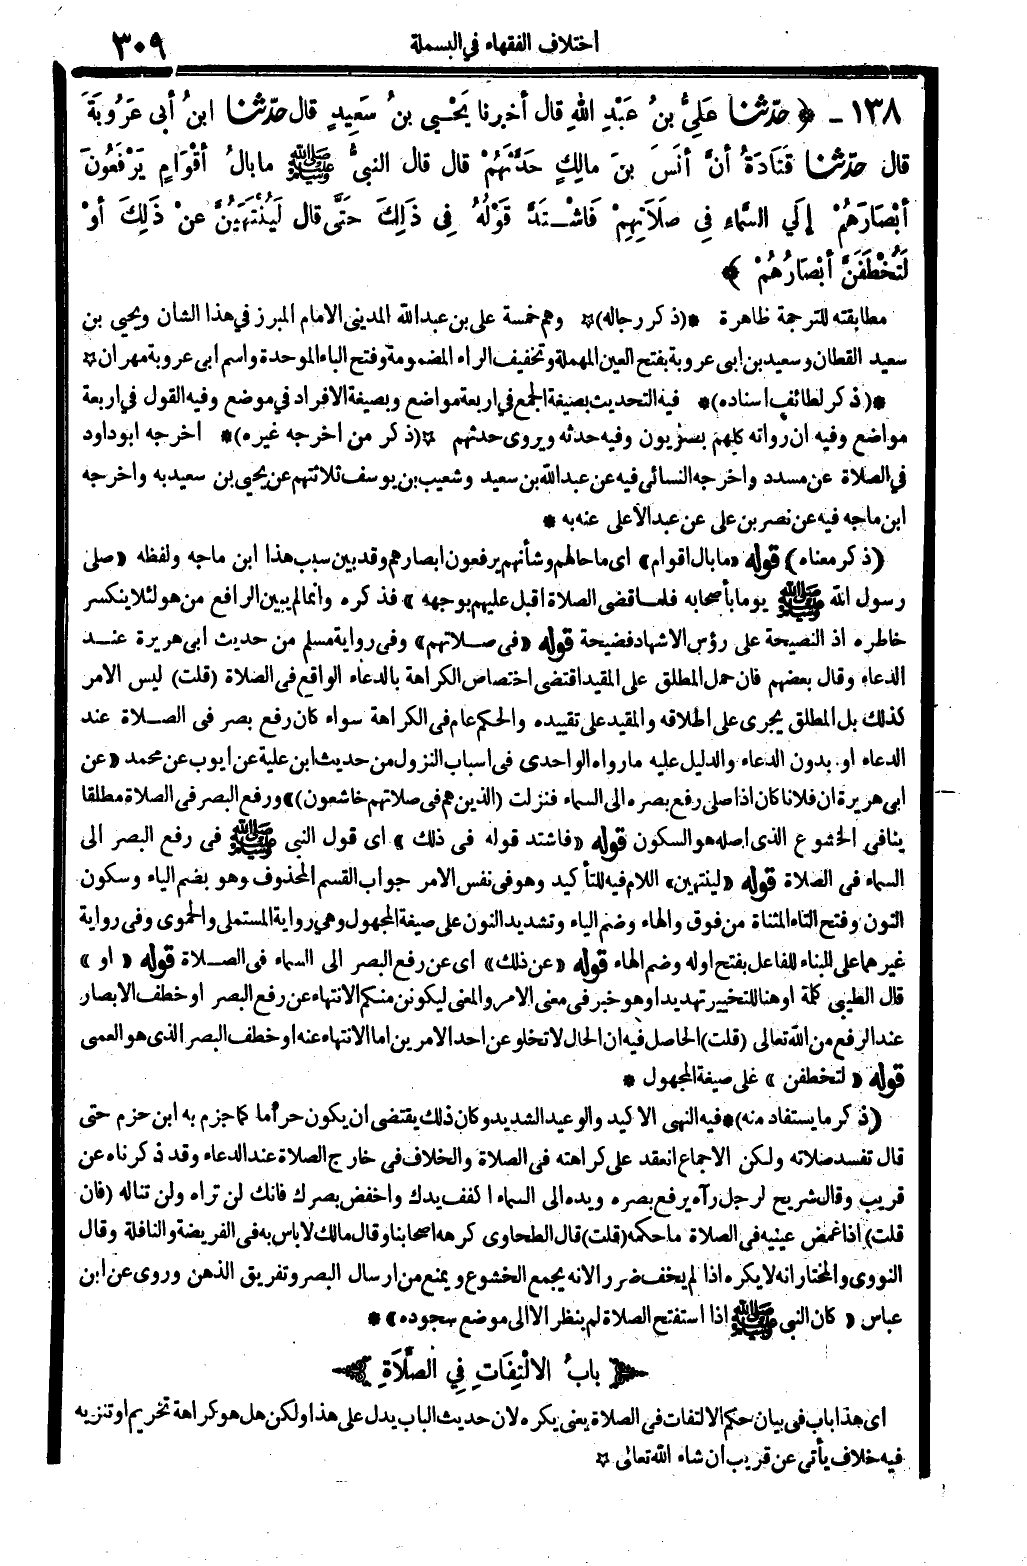 اختلاف الفقهاء في البسملة ٣٠٩
١٣٨ - ﴿ حدّثنا عَلِيُّ بنُ عَبْدِ اللهِ قال أخبرنا يَحْيى بنُ سَعِيدٍ قال حدّثنا ابنُ أبى عَرُوبَةَ
قال حدّثنا قَتَادَةُ أنَّ أنَسَ بنَ مالِكٍ حَدَّثَهُمْ قال قال النبيُّ ﷺ ما بالُ أقْوَامٍ يَرْفَعُونَ
أبْصَارَهُمْ إلَي السَّماءِ فِي صلَاتِهِمْ فَاشْـتَدَّ قَوْلُهُ فِى ذَلِكَ حَتَّى قال لَيُنْتَهَيُنَّ عنْ ذَلِكَ أوْ
لَتُخْطَفَنَّ أبْصَارُهُمْ ﴾
مطابقته للترجمة ظاهرة *(ذكر رجاله)* وهم خمسة على بن عبد الله المدينى الامام المبرز في هذا الشان ويحيى بن
سعيد القطان وسعيد بن ابى عروبة بفتح العين المهملة وتخفيف الراء المضمومة وفتح الباء الموحدة واسم ابى عروبة مهران *
*(ذكر لطائف اسناده)* فيه التحديث بصيغة الجمع في اربعة مواضع وبصيغة الافراد في موضع وفيه القول في اربعة
مواضع وفيه ان رواته كلهم بصريون وفيه حدثه ويروى حدثهم *(ذكر من اخرجه غيره)* اخرجه ابو داود
في الصلاة عن مسدد واخرجه النسائى فيه عن عبد الله بن سعيد وشعيب بن يوسف ثلاثتهم عن يحيى بن سعيد به واخرجه
ابن ماجه فيه عن نصر بن على عن عبد الأعلى عنه به *
(ذكر معناه) قوله «ما بال اقوام» اى ما حالهم وشأنهم يرفعون ابصارهم وقد بين سبب هذا ابن ماجه ولفظه «صلى
رسول الله ﷺ يوما بأصحابه فلما قضى الصلاة اقبل عليهم بوجهه» فذكره وانما لم يبين الرافع من هو لئلا ينكسر
خاطره اذ النصيحة على رؤس الاشهاد فضيحة قوله «فى صلاتهم» وفى رواية مسلم من حديث ابى هريرة عنـد
الدعاء وقال بعضهم فان حمل المطلق على المقيد اقتضى اختصاص الكراهة بالدعاء الواقع فى الصلاة (قلت) ليس الامر
كذلك بل المطلق يجرى على اطلاقه والمقيد على تقييده والحكم عام فى الكراهة سواء كان رفع بصر فى الصـلاة عند
الدعاء او بدون الدعاء والدليل عليه ما رواه الواحدى فى اسباب النزول من حديث ابن علية عن ايوب عن محمد «عن
ابى هريرة ان فلانا كان اذا صلى رفع بصره الى السماء فنزلت (الذين هم فى صلاتهم خاشعون)» ورفع البصر فى الصلاة مطلقا
ينافى الخشوع الذى اصله هو السكون قوله «فاشتد قوله فى ذلك» اى قول النبى ﷺ فى رفع البصر الى
السماء فى الصلاة قوله «لينتهين» اللام فيه للتأكيد وهو فى نفس الامر جواب القسم المحذوف وهو بضم الياء وسكون
النون وفتح التاء المثناة من فوق والهاء وضم الياء وتشديد النون على صيغة المجهول وهي رواية المستملى والحموى وفى رواية
غيرهما على البناء للفاعل بفتح اوله وضم الهاء قوله «عن ذلك» اى عن رفع البصر الى السماء فى الصـلاة قوله «او»
قال الطيبى كلمة او هنا للتخيير تهديدا وهو خبر فى معنى الامر والمعنى ليكونن منكم الانتهاء عن رفع البصر او خطف الابصار
عند الرفع من الله تعالى (قلت) الحاصل فيه ان الحال لا تخلو عن احد الامرين اما الانتهاء عنه او خطف البصر الذى هو العمى
قوله «لتخطفن» على صيغة المجهول *
(ذكر ما يستفاد منه)* فيه النهى الاكيد والوعيد الشديد وكان ذلك يقتضى ان يكون حراما كما جزم به ابن حزم حتى
قال تفسد صلاته ولكن الاجماع انعقد على كراهته فى الصلاة والخلاف فى خارج الصلاة عند الدعاء وقد ذكرناه عن
قريب وقال شريح لرجل رآه يرفع بصره ويده الى السماء اكفف يدك واخفض بصرك فانك لن تراه ولن تناله (فان
قلت) اذا غمض عينيه فى الصلاة ما حكمه (قلت) قال الطحاوى كرهه اصحابنا وقال مالك لا باس به فى الفريضة والنافلة وقال
النووى والمختار انه لا يكره اذا لم يخف ضررا لانه يجمع الخشوع ويمنع من ارسال البصر وتفريق الذهن وروى عن ابن
عباس «كان النبى ﷺ اذا استفتح الصلاة لم ينظر الا الى موضع سجوده» *
﴿ بابُ الالْتِفَاتِ فِي الصَّلَاةِ ﴾
اى هذا باب فى بيان حكم الالتفات فى الصلاة يعنى يكره لان حديث الباب يدل على هذا ولكن هل هو كراهة تحريم او تنزيه
فيه خلاف يأتى عن قريب ان شاء الله تعالى *